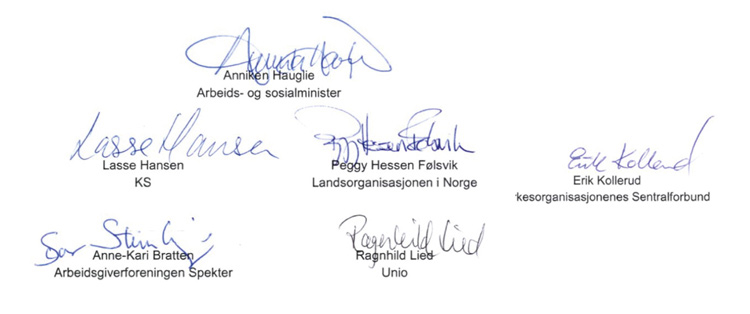 Anniken Hauglie
Arbeids- og sosialminister
Lasse Hansen
Lasse Hansen
KS
Peggy Hessen Følsvik
Landsorganisasjonen i Norge
Erik Kollerud
Erik Kollerud
rkesorganisasjonenes Sentralforbund
Anne-Kari Bratten
Arbeidsgiverforeningen Spekter
Ragnhild Lied
Ragnhild Lied
Unio